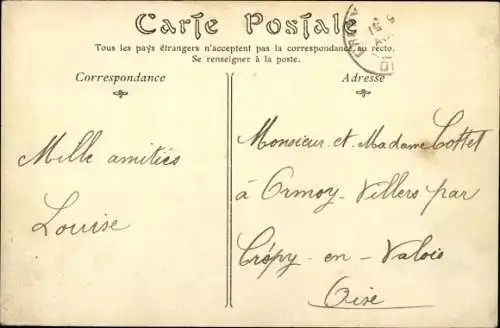 Carte Postale
Tous les pays étrangers n'acceptent pas la correspondance au recto.
Se renseigner à la poste.
Correspondance
Adresse
Mille amitiés
Louise
Monsieur et Madame Cottet
à Ormoy-Villers par
Crépy-en-Valois
Oise